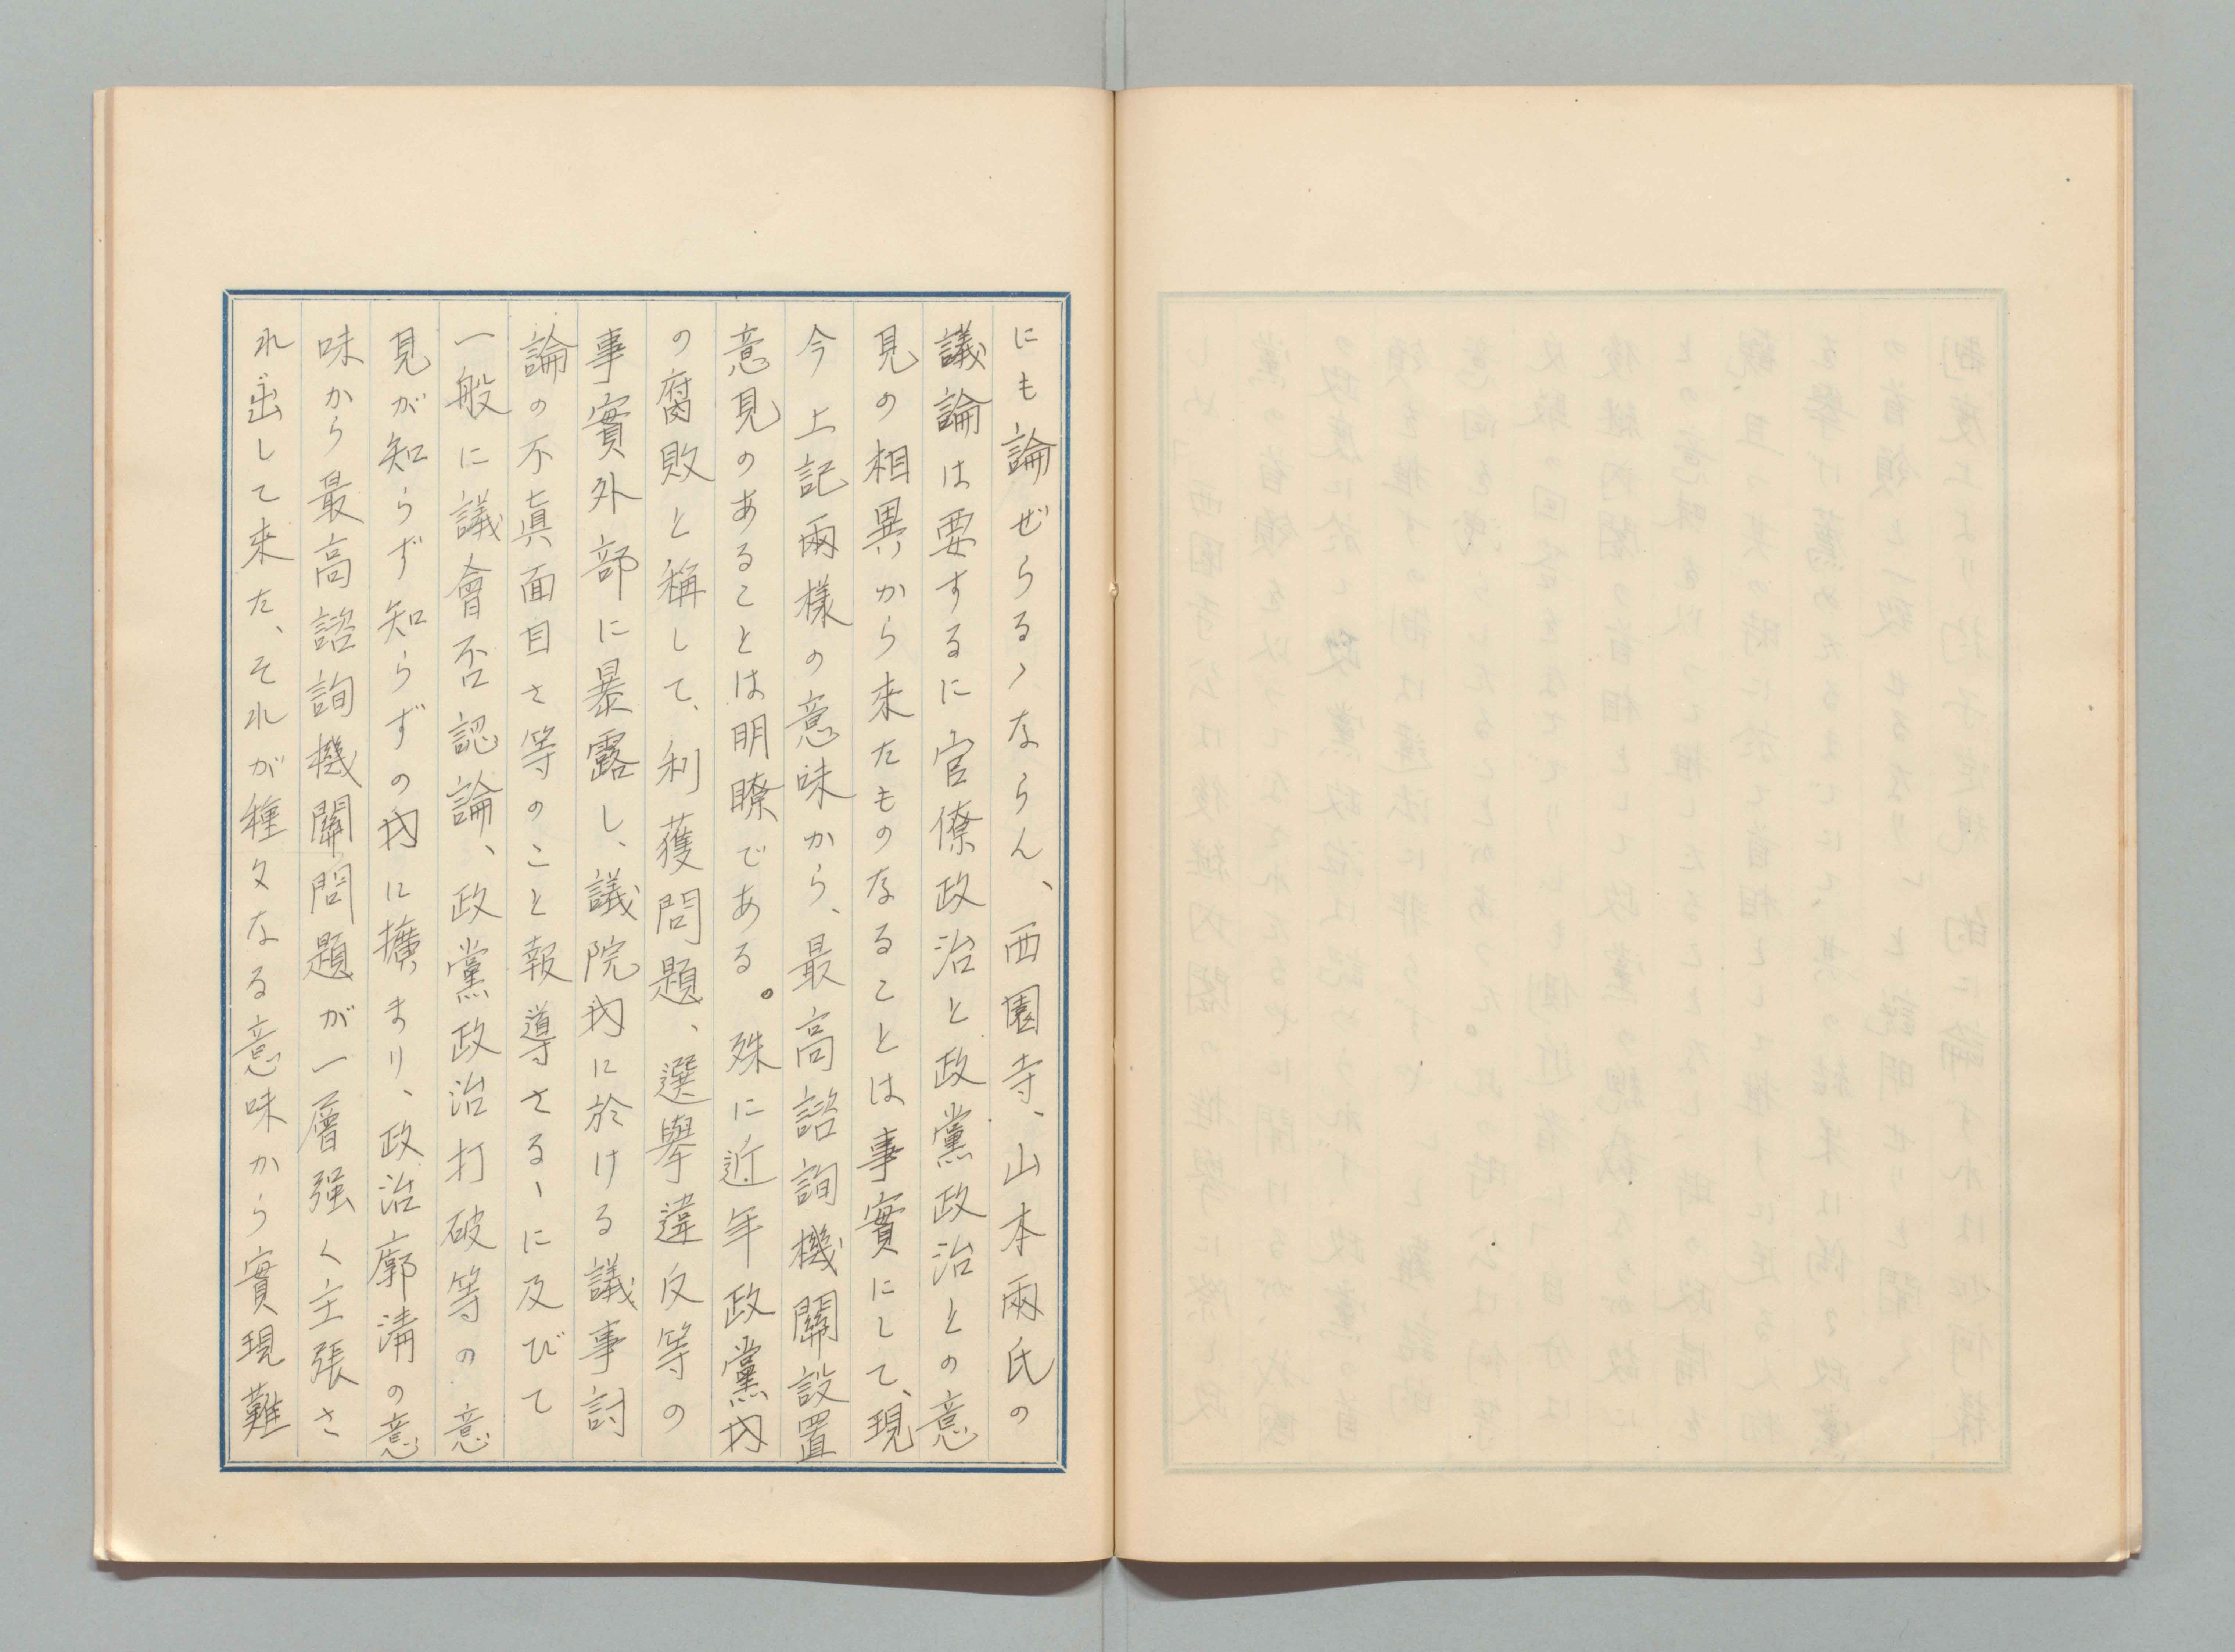 にも論ぜらるゝならん、西園寺、山本兩氏の
議論は要するに官僚政治と政黨政治との意
見の相異から來たものなることは事實にして、現
今上記兩樣の意味から、最高諮詢機關設置
意見のあることは明瞭である。殊に近年政黨内
の腐敗と稱して、利獲問題、選擧違反等の
事實外部に暴露し、議院内に於ける議事討
論の不眞面目さ等のこと報導さるゝに及びて
一般に議會否認論、政黨政治打破等の意
見が知らず知らずの内に擴まり、政治廓淸の意
味から最高諮詢機關問題が一層强く主張さ
れ出して来た、それが種々なる意味から實現難